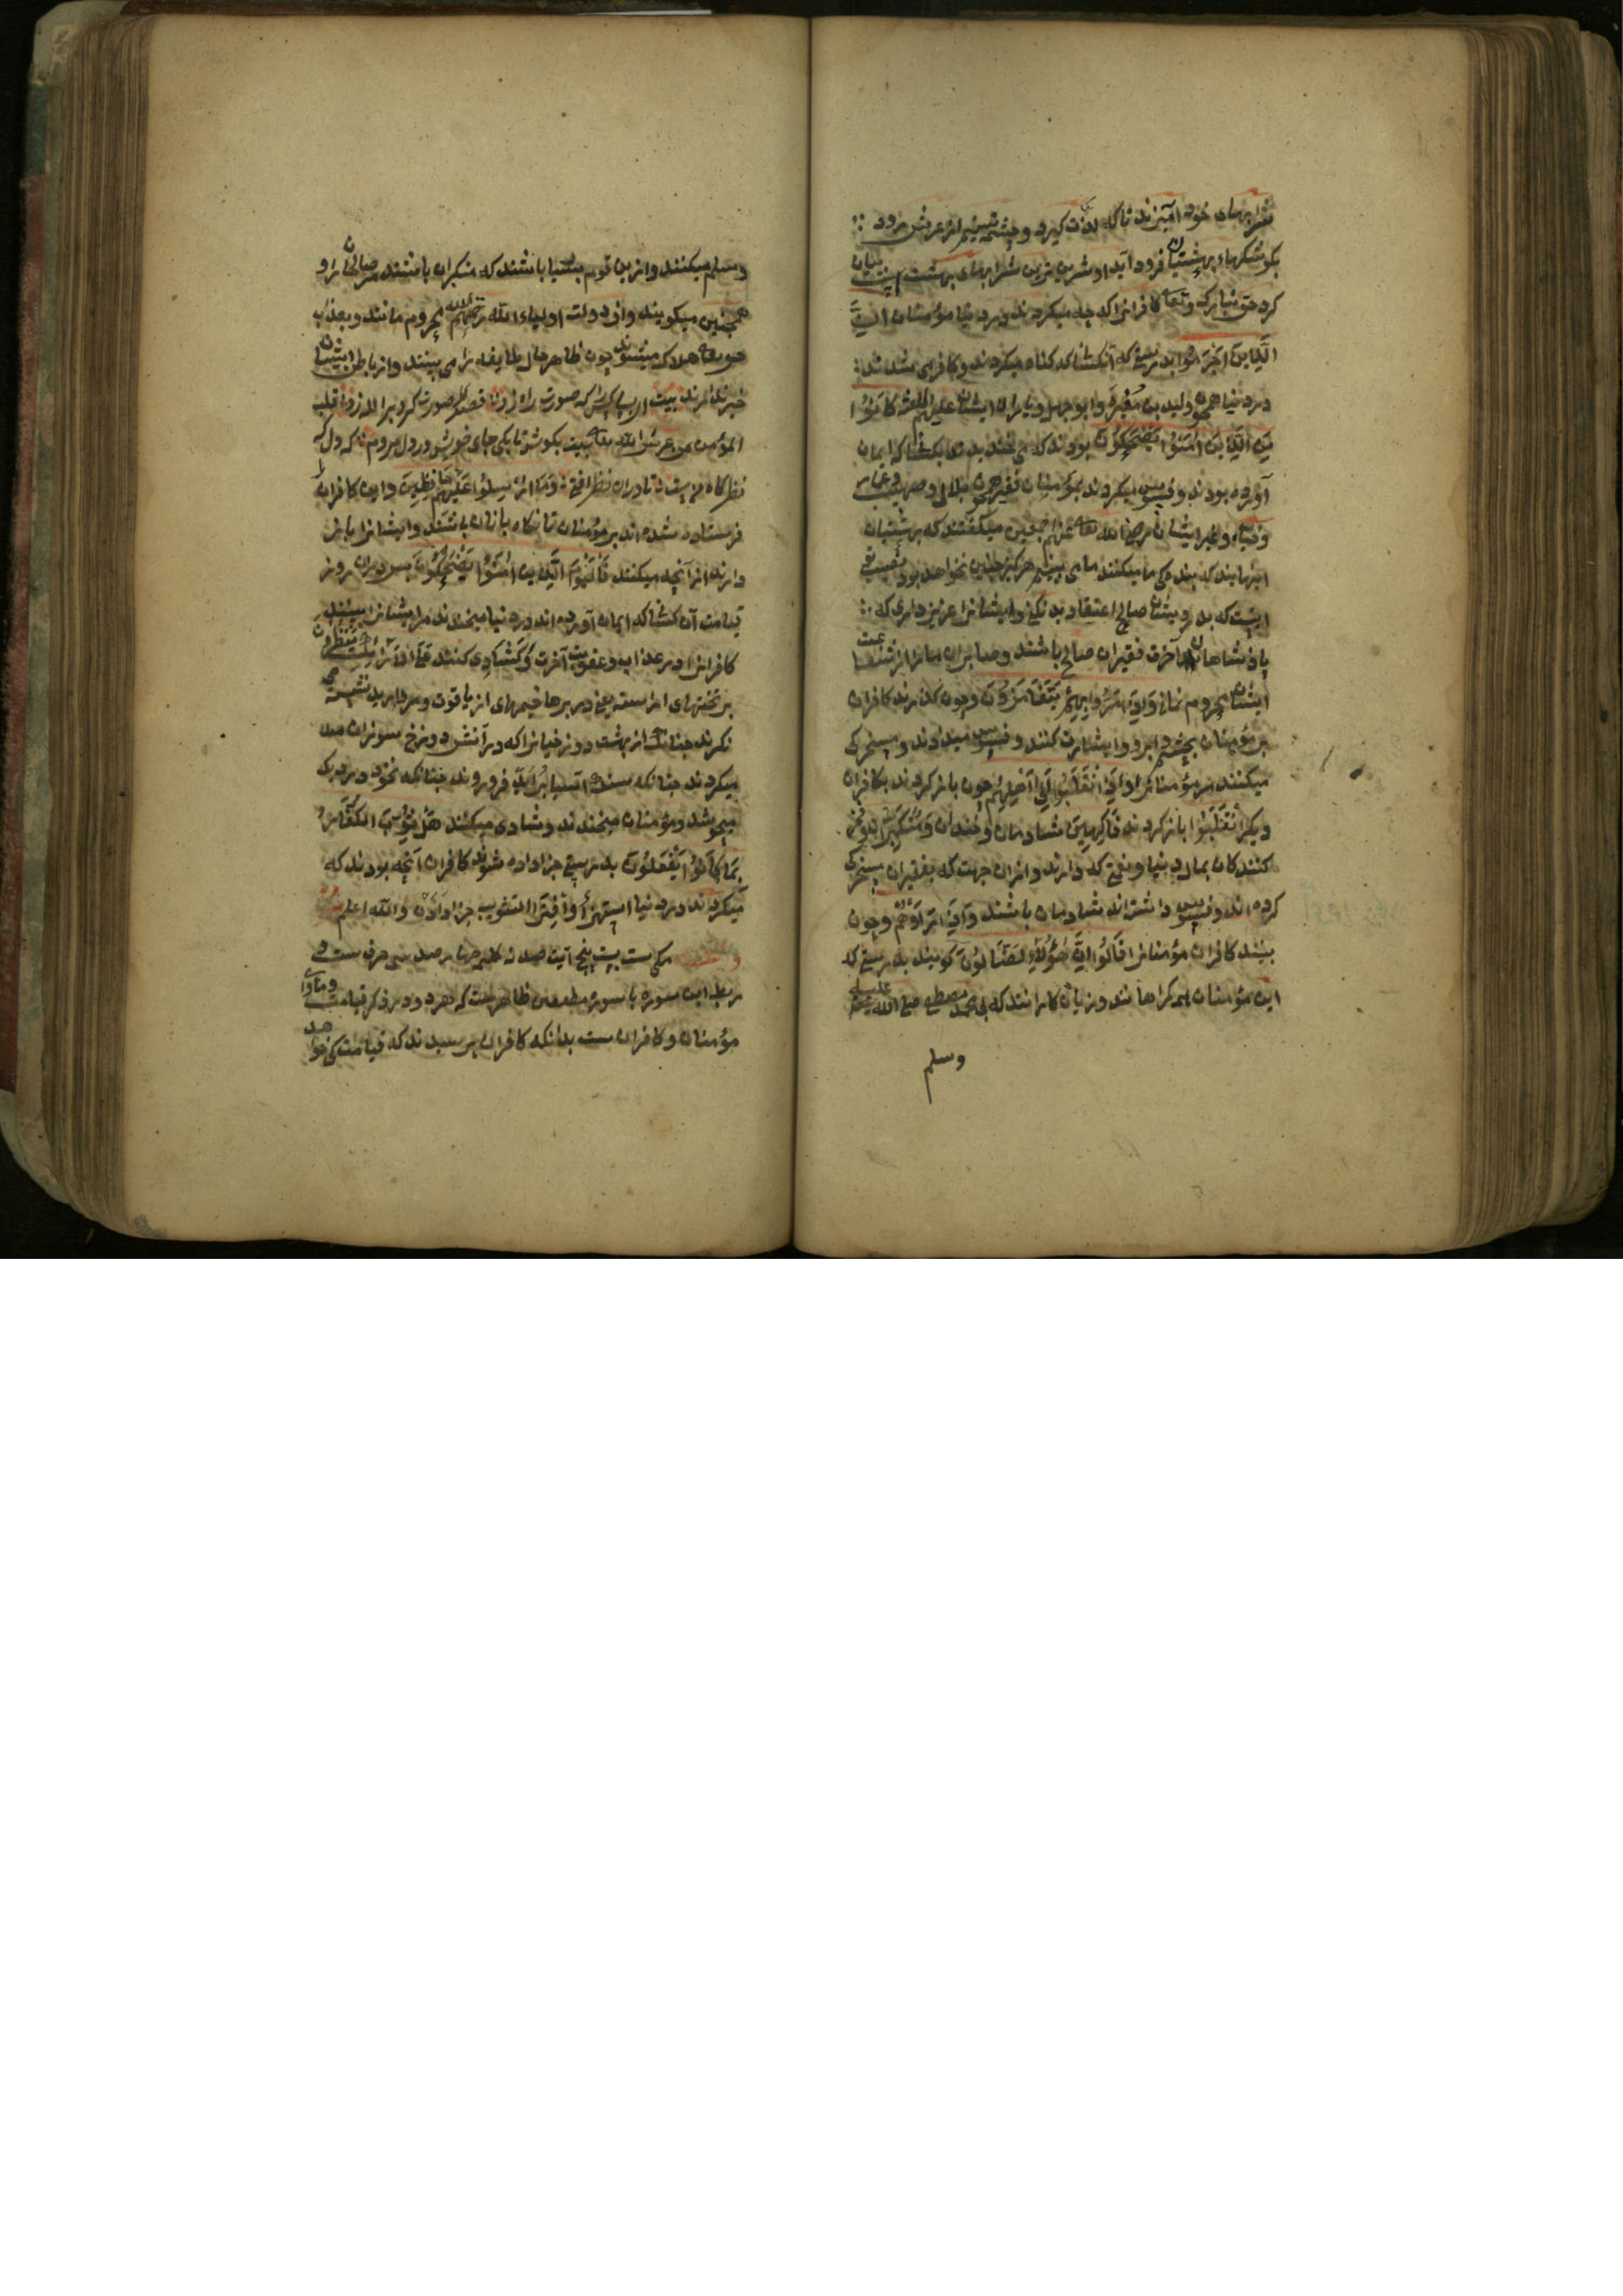 شرابهای خود آمیزند تا که لذت گیرد و چشمه تسنیم از عرش فرود
بکوشکهاء بهشتیان فرود آید او شرین ترین شرابهای بهشت است بیان
کرد حق تبارک وتعا کافرانرا که چه میکردند در دنیا مؤمنان اِنَّ
الَّذِینَ اَجْرَمُوْا بدرستی که آنکسانکه کناه میکردند و کافر می شدند
در دنیا همچون ولید بن مغیره وابو جهل ویاران ایشان علیهم اللعنة کَانُوْا
مِنَ الَّذِیْنَ اٰمَنُوْا یَضْحَکُوْنَ بودند که می خندیدند بکسانکه ایمان
آورده بودند وفسوس میکردند بمؤمنان فقیر همچون بلال وصهیب وعمار
وخباب وغیر ایشان رضی الله تعا عنهم اجمعین میکفتند که بهشتیان
اینهایند که بندکی ما میکنند ما می بینیم هرکز چنین نخواهد بود نصیب تو
اینست که بدرویشان صالح اعتقاد به نیکی و ایشانرا عزیز داری که
پادشاهان آخرت فقیران صالح باشند وصابران ما را از شفاعت
ایشان محروم نمانی وَاِذَا مَرُّوا بِهِمْ یَتَغَامَزُوْنَ وچون کذرند کافران
بر مؤمنان بچشم و ابرو اشارت کنند و فسوس میدادند و مسخرکی
میکنند مر مؤمنانرا وَاِذَا انْقَلَبُوْا اِلٰی اَهْلِهِمُ چون باز کردند بکافران
دیکر انْقَلَبُوْا باز کردند فَاکِهِیْنَ شادمان و خندان و متکبران وفخر
کنندکان بمال دنیا ونعمتی که دارند وازان جهت که بفقیران مسخرکی
کرده اند وفسوس داشته اند شادمان باشند وَاِذَا رَاَوْهُمْ وچون
بینند کافران مؤمنانرا قَالُوْا اِنَّ هٰؤُلَاءِ لَضَالُّوْنَ کویند بدرستی که
این مؤمنان همه کمراهانند و زیان کارانند که بی محمد مصطفی صلی الله علیه
وسلم
وسلم میکنند وازین قوم بسیار باشند که منکران باشند مر صالحان را و
همچنین میکویند واز دولت اولیاء الله رحمهم الله محروم مانند وبعذاب
حق تعا هلاک میشوند چون ظاهر حال طایفه را می بینند واز باطن ایشان
خبر ندارند بیت صورت راه زد قصد صورت کرد بر الله زد قلب
المؤمن عرش الله تعا بیت بکوش تا بکی جای خویش در دل مردم که دل
نظرکاه تا دران نظر افتی وَمَا اُرْسِلُوْا عَلَیْهِمْ حَافِظِیْنَ واین کافران را
فرستاده نشده اند بر مؤمنان تا نکاه بانان باشند وایشانرا باز
دارند از آنچه میکنند فَالْیَوْمَ الَّذِیْنَ اٰمَنُوْا یَضْحَکُوْنَ پس دران روز
قیامت آن کسانکه ایمان آورده اند در دنیا میخندند مر ایشانرا ببینند
کافرانرا در عذاب وعقوبت آخرت وشادی کنند عَلَی الْاَرَائِکِ یَنْظُرُوْنَ
بر تختهای اراسته یعنی در برها خیمهای از یاقوت و مروارید نشسته می
نکرند چنانک از بهشت دوزخیانرا که در آتش دوزخ سوزان می
میکردند چنانکه سنک آسیا فرو روند چنانکه نخود در دیک
میجوشد ومؤمنان میخندند وشادی میکنند هَلْ ثُوِّبَ الْکُفَّارُ
مَا کَانُوْا یَفْعَلُوْنَ بدرستی جزا داده شوند کافران آنچه بودند که
میکردند در دنیا استهزا وافترا التثویب جزا دادن والله اعلم
مکی ست بیست پنج آیت صد نه کلمه چهار صد سی حرف ست
ربط این سوره با سوره مطففین ظاهرست که هر دو در ذکر قیامت وماوا
مؤمنان وکافران ست بدانکه کافران پرسیدند که قیامت کی خواهد